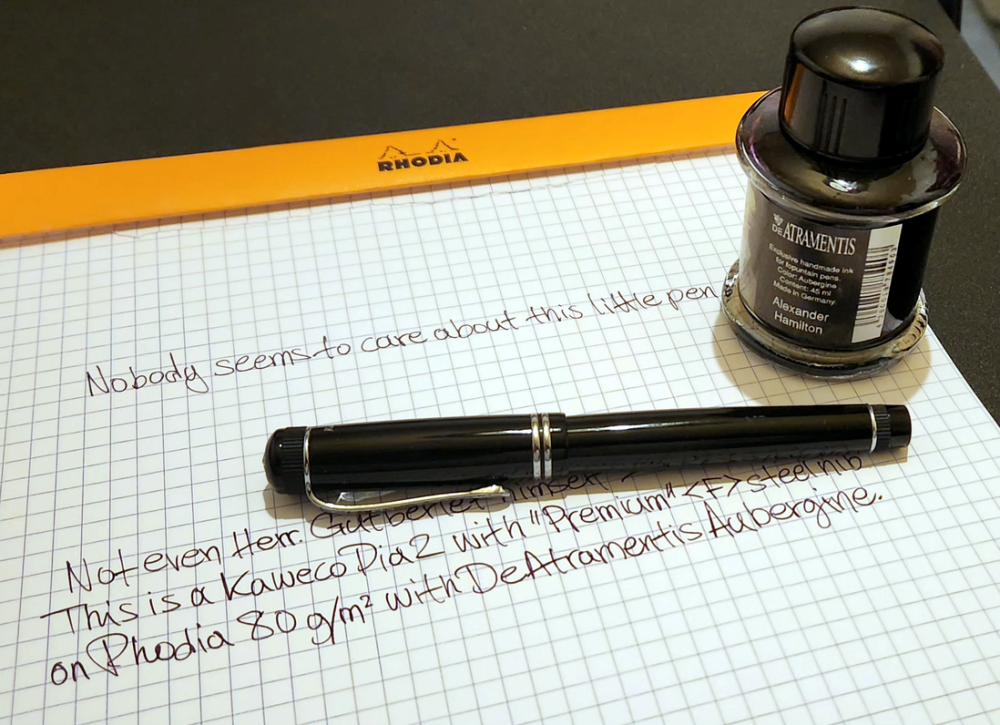 RHODIA
DE ATRAMENTIS
Exclusive handmade ink
for fopuntain pens.
Color: Aubergine
Content: 45 ml
Made in Germany.
Alexander
Hamilton
Nobody seems to care about this little pen
Not even Herr. Gutberlet himself
This is a Kaweco Dia2 with "Premium" <F> steel nib
on Rhodia 80 g/m² with DeAtramentis Aubergine.